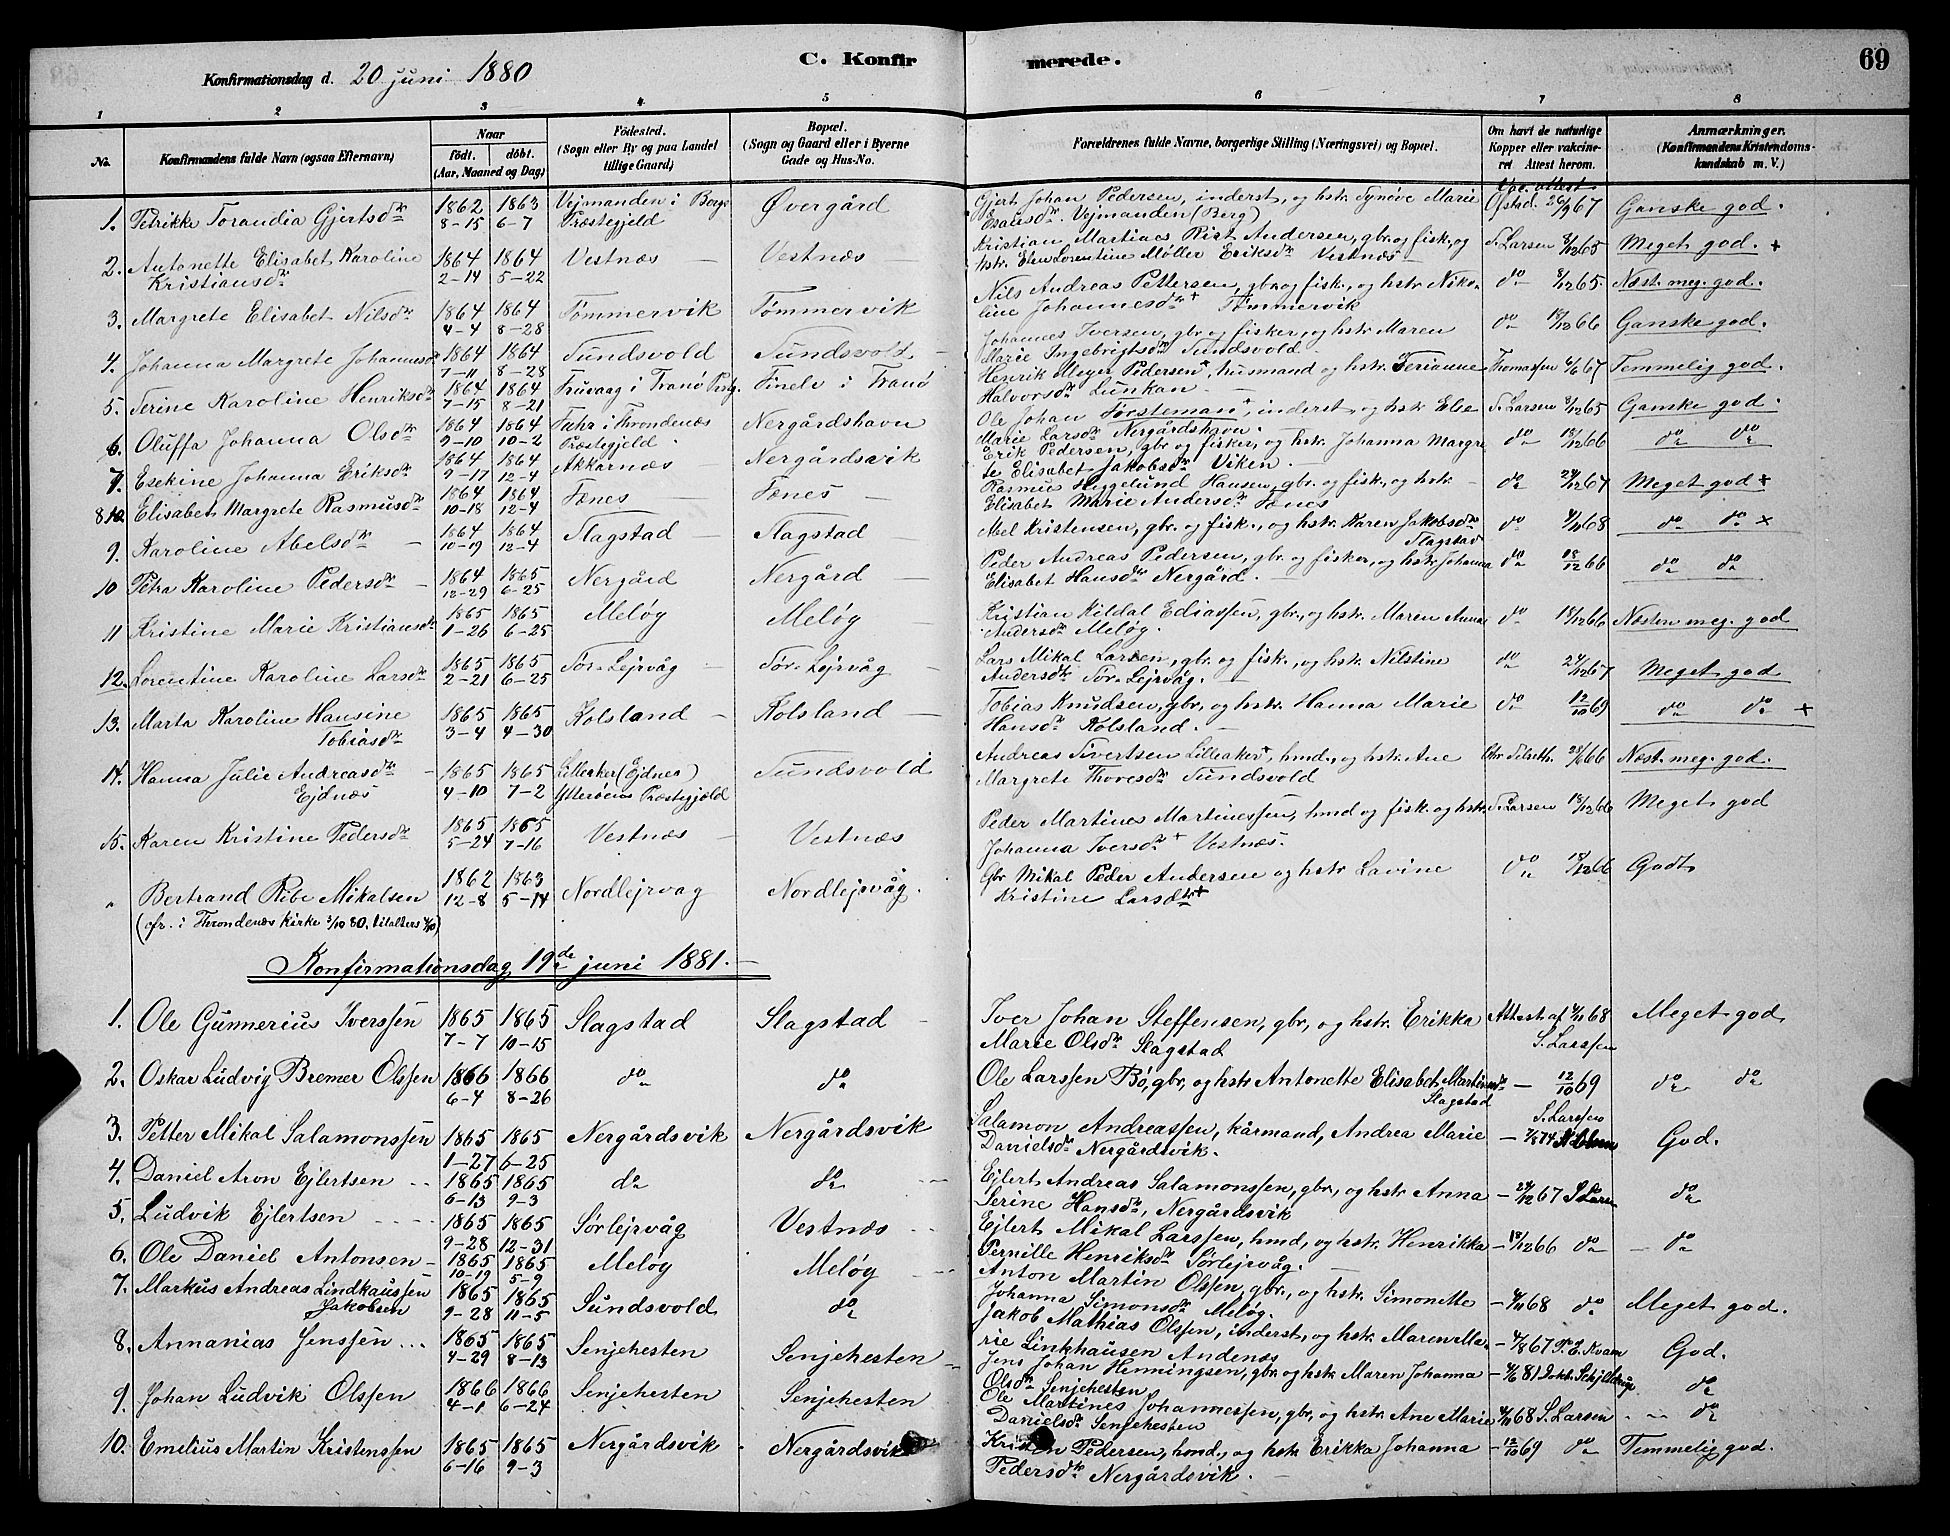 Konfirmationsdag d. 20 juni 1880
C. Konfir
merede.
69
1 2 3 4 5 6 7 8
No.
Konfirmandens fulde Navn (ogsaa Efternavn)
Naar
født. døbt.
(Aar, Maaned og Dag)
Fødested.
(Sogn eller By og paa Landet
tillige Gaard)
Bopæl.
(Sogn og Gaard eller i Byerne
Gade og Hus-No.
Forældrenes fulde Navne, borgerlige Stilling (Næringsvei) og Bopæl.
Om havt de naturlige
Kopper eller vakcine-
ret Attest herom.
Anmærkninger.
(Konfirmandens Kristendoms-
kundskab m. V.)
1. Petrikke Torandia Gjertsdtr 1862 8-15 1863 6-7 Vejmanden i Bergs Præstegjeld Øvergård
Gjert Johan Pedersen, inderst, og hstr Synøve Marie
Esausdtr. Vejmanden (Berg) Vac. attest Ofstad 26/9 67 Ganske god.
2. Antonette Elisabet Karoline
Kristiansdtr 1864 2-14 1864 5-22 Vestnæs — Vestnæs —
Kristian Martines Rist Andersen, gbr. og fisk., og
hstr. Elen Lorentine Møller Eriksdtr Vestnæs — S. Larsen 8/12 65 Meget god. +
3. Margrete Elisabet Nilsdtr 1864 4-4 1864 8-28 Tømmervik Tømmervik
Nils Andreas Pettersen, gbr. og fisk., og hstr. Niko-
line Johannesdtr + Tømmervik do 8/12 65 Næst. meg. god.
4. Johanna Margrete Johannesdtr 1864 7-11 1864 8-28 Sundsvold Sundsvold —
Johannes Iversen, gbr. og fisker, og hstr. Maren
Marie Ingebrigtsdtr Sundsvold. do 18/12 66 Ganske god.
5. Serine Karoline Henriksdtr 1864 7-15 1864 8-21 Fruvaag i Tranø Prstg. Finelv i Tranø
Henrik Meyer Pedersen +, husmand og hstr. Serianne
Halvorsdtr Lunkan — Thomassen 6/6 67 Temmelig god.
6. Oluffa Johanna Olsdtr 1864 9-10 1864 10-2 Fuhr i Throndenæs Præstegjeld. Nergårdshavn
Ole Johan Torsteman +, inderst, og hstr Else
Marie Larsdtr Nergårdshavn. S. Larsen 8/12 65 Ganske god.
7. Esekine Johanna Eriksdtr 1864 9-17 1864 12-4 Akkarnæs — Nergårdsvik
Erik Pedersen, gbr. og fisker, og hstr. Johanna Margre
te Elisabet Jakobsdtr Viken. — do 18/12 66 do do
8 Elisabet Margrete Rasmusdtr 1864 10-18 1864 12-4 Fænes — Fænes —
Rasmus Heggelund Hansen, gbr. og fisk., og hstr. —
Elisabet Marie Andersdtr Fænes do 24/12 67 Meget god +
9. Karoline Abelsdtr — 1864 10-19 1864 12-4 Slagstad — Slagstad —
Abel Kristensen, gbr. og fisk., og hstr. Karen Jakobsdtr
Slagstad do 4/11 68 do do +
10 Petra Karoline Pedersdtr — 1864 12-29 1865 6-25 Nergård Nergård —
Peder Andreas Pedersen, gbr. og fisker, og hstr. Johanna
Elisabet Hansdtr Nergård. — do 18/12 66 do do
11 Kristine Marie Kristiansdtr 1865 1-26 1865 6-25 Meløg Meløg —
Kristian Kildal Ediassen, gbr., og hstr. Maren Anna
Andersdtr Meløg. do 18/12 66 Næsten meg. god
12. Lorentine Karoline Larsdtr 1865 2-21 1865 6-25 Sør-Lejrvåg Sør-Lejrvåg —
Lars Mikal Larsen, gbr. og fisk., og hstr. Nilstine
Andersdtr Sør-Lejrvåg. — do 24/12 67 Meget god
13. Marta Karoline Hansine
Tobiasdtr 1865 3-4 1865 4-30 Kolsland — Kolsland —
Tobias Knudsen, gbr., og hstr. Hanna Marie
Hansdtr Kolsland. — do 12/10 69 do do +
14. Hanna Julie Andreasdtr —
Ejdnæs 1865 4-10 1865 7-2 Lilleaker (Ejdnes) Ytterøens Præstegjeld Sundsvold
Andreas Sivertsen Lilleaker +, hmd., og hstr. Ane
Margrete Thoresdtr Sundsvold 66 Næst. meg. god.
15. Karen Kristine Pedersdtr 1865 5-24 1865 7-16 Vestnæs — Vestnæs
Peder Martines Martinessen, hmd og fisk. og hstr.
Johanna Iversdtr + Vestnæs. S. Larsen 18/12 66 Meget god
" Bertrand Ribe Mikalsen 1862 12-8 1863 5-14 Nordlejrvag Nordlejrvåg.
Gbr. Mikal Peder Andersen og hstr. Lavine
Kristine Larsdtr + do 18/12 66 Godt
(cfr. i Throndenæs Kirke 3/10 80,
Konfirmationsdag 19de juni 1881. —
1. Ole Gunnerius Iverssen 1865 7-7 1865 10-15 Slagstad Slagstad —
Iver Johan Steffensen, gbr., og hstr. Erikka
Marie Olsdtr Slagstad Attest af 4/11 68 S. Larssen Meget god
2. Oskar Ludvig Bremer Olssen 1866 6-4 1866 8-26 do do
Ole Larssen Bø, gbr., og hstr. Antonette Elisabet Martinsdtr
Slagstad — 12/10 69 S. Larssen do do
3. Petter Mikal Salamonssen 1865 1-27 1865 6-25 Nergårdsvik Nergårdsvik
Salamon Andreassen, kårmand, Andrea Marie
Danielsdtr Nergårdsvik. — 74 God.
4. Daniel Aron Ejlertsen 1865 6-13 1865 9-3 do do
Ejlert Andreas Salamonssen, gbr., og hstr. Anna
Serine Hansdtr, Nergårdsvik — 24/12 67 S. Larsen do
5. Ludvik Ejlertsen 1865 9-28 1865 12-31 Sørlejrvåg Vestnæs
Ejlert Mikal Larssen, hmd., og hstr. Henrikka
Pernille Henriksdtr Sørlejrvåg. — 18/12 66 do do
6. Ole Daniel Antonsen 1865 10-19 1865 5-9 Meløg Meløg
Anton Martin Olssen, gbr., og hstr. Simonette
Johanna Simonsdtr Meløg. — 4/11 68 do Meget god.
7. Markus Andreas Lindkaussen
Jakobsen 1865 9-28 1865 11-5 Sundsvold do
Jakob Mathias Olssen, inderst, og hstr. Maren Ma-
rie Linkhausen Andenæs — 67 P. E. Kvam God.
8. Annanias Jenssen 1865 4-29 1865 8-13 Senjehesten Senjehesten
Jens Johan Henningsen, gbr. og hstr. Maren Johanna
Olsdtr Senjehesten — 81 Dokt. Schjelderup do
9. Johan Ludvik Olssen 1866 4-1 1866 6-24 Senjehesten Senjehesten
Ole Martines Johannessen, gbr., og hstr. Ane Marie
Danielsdtr Senjehesten 4/11 68 S. Larsen do
10. Emelius Martin Kristenssen 1865 6-16 1865 9-3 Nergårdsvik Nergårdsvik
Kristen Pedersen, hmd., og hstr. Erikka Johanna
Pedersdtr Nergårdsvik. — 12/10 69 do Temmelig god.